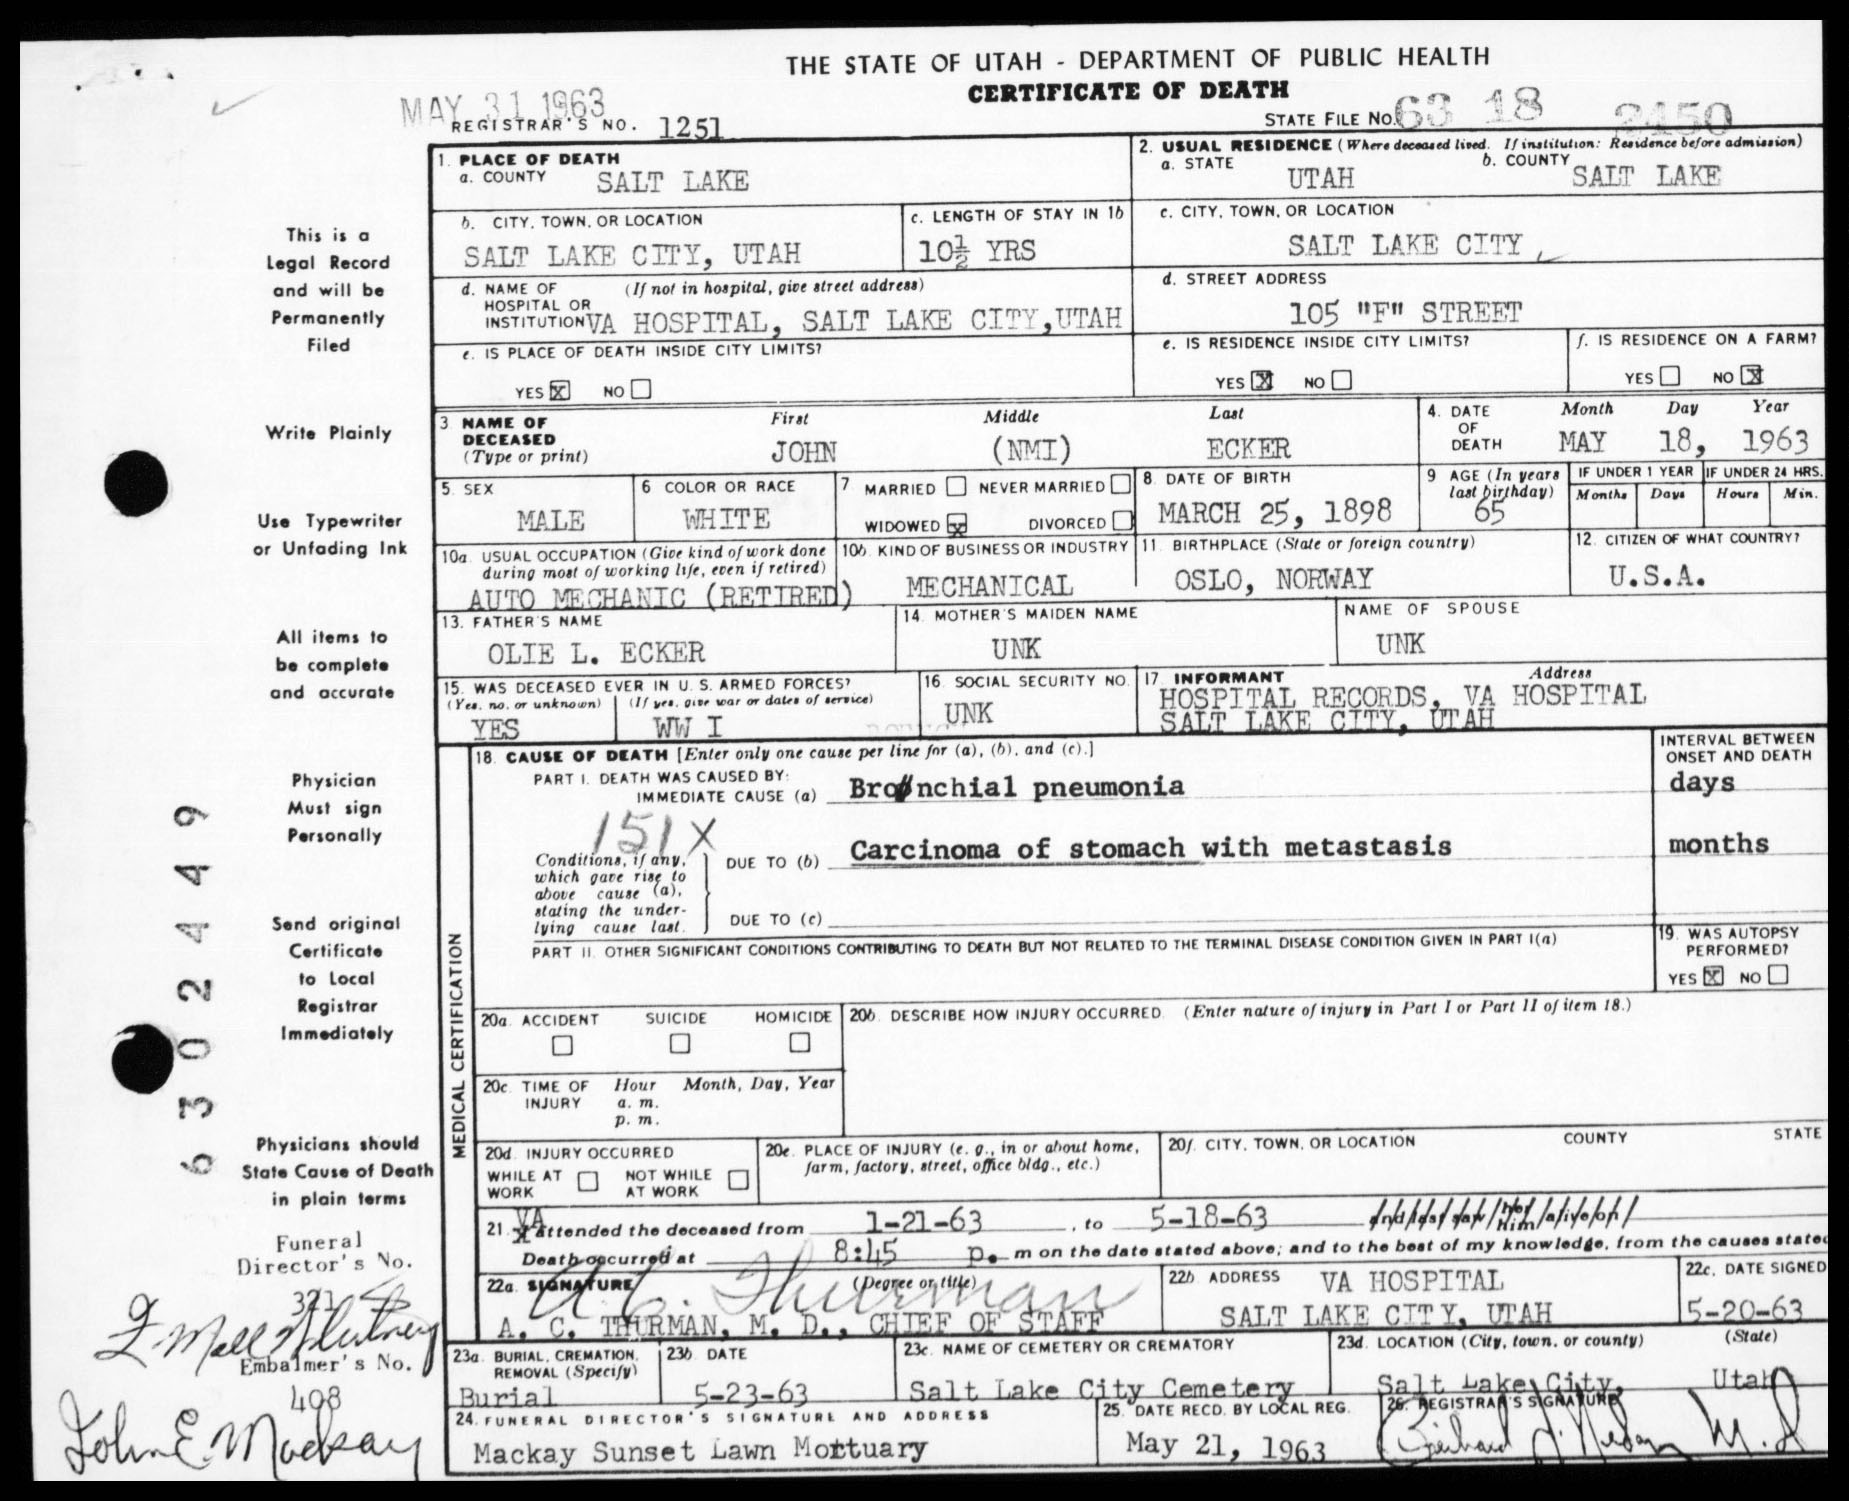 THE STATE OF UTAH - DEPARTMENT OF PUBLIC HEALTH
CERTIFICATE OF DEATH
MAY 31 1963
REGISTRAR'S NO. 1251
STATE FILE NO. 63 18 2450
1. PLACE OF DEATH
a. COUNTY SALT LAKE
2. USUAL RESIDENCE (Where deceased lived. If institution: Residence before admission)
a. STATE UTAH b. COUNTY SALT LAKE
b. CITY, TOWN, OR LOCATION
SALT LAKE CITY, UTAH
c. LENGTH OF STAY IN 1b
10½ YRS
c. CITY, TOWN, OR LOCATION
SALT LAKE CITY
d. NAME OF HOSPITAL OR INSTITUTION (If not in hospital, give street address)
VA HOSPITAL, SALT LAKE CITY, UTAH
d. STREET ADDRESS
105 "F" STREET
e. IS PLACE OF DEATH INSIDE CITY LIMITS?
YES X NO
e. IS RESIDENCE INSIDE CITY LIMITS?
YES X NO
f. IS RESIDENCE ON A FARM?
YES NO X
3. NAME OF DECEASED (Type or print)
First Middle Last
JOHN (NMI) ECKER
4. DATE OF DEATH
Month Day Year
MAY 18, 1963
5. SEX
MALE
6 COLOR OR RACE
WHITE
7 MARRIED NEVER MARRIED
WIDOWED X DIVORCED
8. DATE OF BIRTH
MARCH 25, 1898
9 AGE (In years last birthday)
65
IF UNDER 1 YEAR IF UNDER 24 HRS.
Months Days Hours Min.
10a. USUAL OCCUPATION (Give kind of work done during most of working life, even if retired)
AUTO MECHANIC (RETIRED)
10b. KIND OF BUSINESS OR INDUSTRY
MECHANICAL
11. BIRTHPLACE (State or foreign country)
OSLO, NORWAY
12. CITIZEN OF WHAT COUNTRY?
U.S.A.
13. FATHER'S NAME
OLIE L. ECKER
14. MOTHER'S MAIDEN NAME
UNK
NAME OF SPOUSE
UNK
15. WAS DECEASED EVER IN U. S. ARMED FORCES?
(Yes, no, or unknown) (If yes, give war or dates of service)
YES WW I
16. SOCIAL SECURITY NO.
UNK
17. INFORMANT Address
HOSPITAL RECORDS, VA HOSPITAL
SALT LAKE CITY, UTAH
MEDICAL CERTIFICATION
18. CAUSE OF DEATH [Enter only one cause per line for (a), (b), and (c).]
PART I. DEATH WAS CAUSED BY:
IMMEDIATE CAUSE (a) Bronchial pneumonia
INTERVAL BETWEEN ONSET AND DEATH
days
151X
Conditions, if any, which gave rise to above cause (a), stating the underlying cause last.
DUE TO (b) Carcinoma of stomach with metastasis
months
DUE TO (c)
PART II. OTHER SIGNIFICANT CONDITIONS CONTRIBUTING TO DEATH BUT NOT RELATED TO THE TERMINAL DISEASE CONDITION GIVEN IN PART I(a)
19. WAS AUTOPSY PERFORMED?
YES X NO
20a. ACCIDENT SUICIDE HOMICIDE
20b. DESCRIBE HOW INJURY OCCURRED. (Enter nature of injury in Part I or Part II of item 18.)
20c. TIME OF INJURY Hour Month, Day, Year
a. m.
p. m.
20d. INJURY OCCURRED
WHILE AT WORK NOT WHILE AT WORK
20e. PLACE OF INJURY (e. g., in or about home, farm, factory, street, office bldg., etc.)
20f. CITY, TOWN, OR LOCATION COUNTY STATE
21. VA attended the deceased from 1-21-63, to 5-18-63 and last saw her him alive on
Death occurred at 8:45 p. m on the date stated above; and to the best of my knowledge, from the causes stated
22a. SIGNATURE (Degree or title)
A. C. Thurman
A. C. THURMAN, M. D., CHIEF OF STAFF
22b. ADDRESS VA HOSPITAL
SALT LAKE CITY, UTAH
22c. DATE SIGNED
5-20-63
23a. BURIAL, CREMATION, REMOVAL (Specify)
Burial
23b. DATE
5-23-63
23c. NAME OF CEMETERY OR CREMATORY
Salt Lake City Cemetery
23d. LOCATION (City, town, or county) (State)
Salt Lake City, Utah
24. FUNERAL DIRECTOR'S SIGNATURE AND ADDRESS
Mackay Sunset Lawn Mortuary
25. DATE RECD. BY LOCAL REG.
May 21, 1963
26. REGISTRAR'S SIGNATURE
This is a
Legal Record
and will be
Permanently
Filed
Write Plainly
Use Typewriter
or Unfading Ink
All items to
be complete
and accurate
Physician
Must sign
Personally
Send original
Certificate
to Local
Registrar
Immediately
Physicians should
State Cause of Death
in plain terms
6302449
Funeral
Director's No.
321
Embalmer's No.
408
John E. Mackay